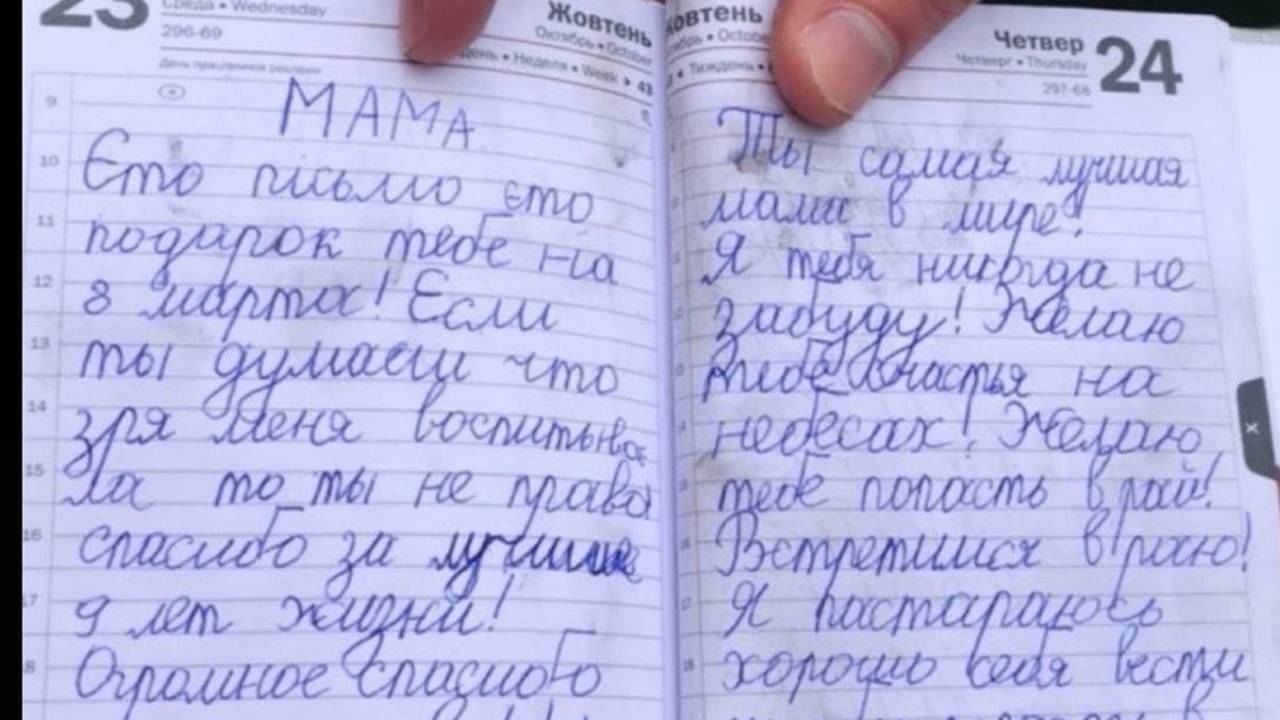 23
Среда • Wednesday
296-69
День працівників реклами
Жовтень
Октябрь • October
Тиждень • Неделя • Week ▸ 43
МАМА
Єто письмо єто
подарок тебе на
8 марта! Если
ты думаеш что
зря меня воспитыва
ла то ты не права
спасибо за лучшие
9 лет жизни!
Огромное спасибо
Жовтень
• October
• Тиждень •
Четвер
Четверг • Thursday
297-68
24
Ты самая лучшая
мама в мире!
Я тебя никогда не
забуду! Желаю
тебе счастья на
небесах! Желаю
тебе попасть в рай!
Встретимся в раю!
Я пастараюсь
хорошо себя вести
9
10
11
12
13
14
15
16
17
18
x